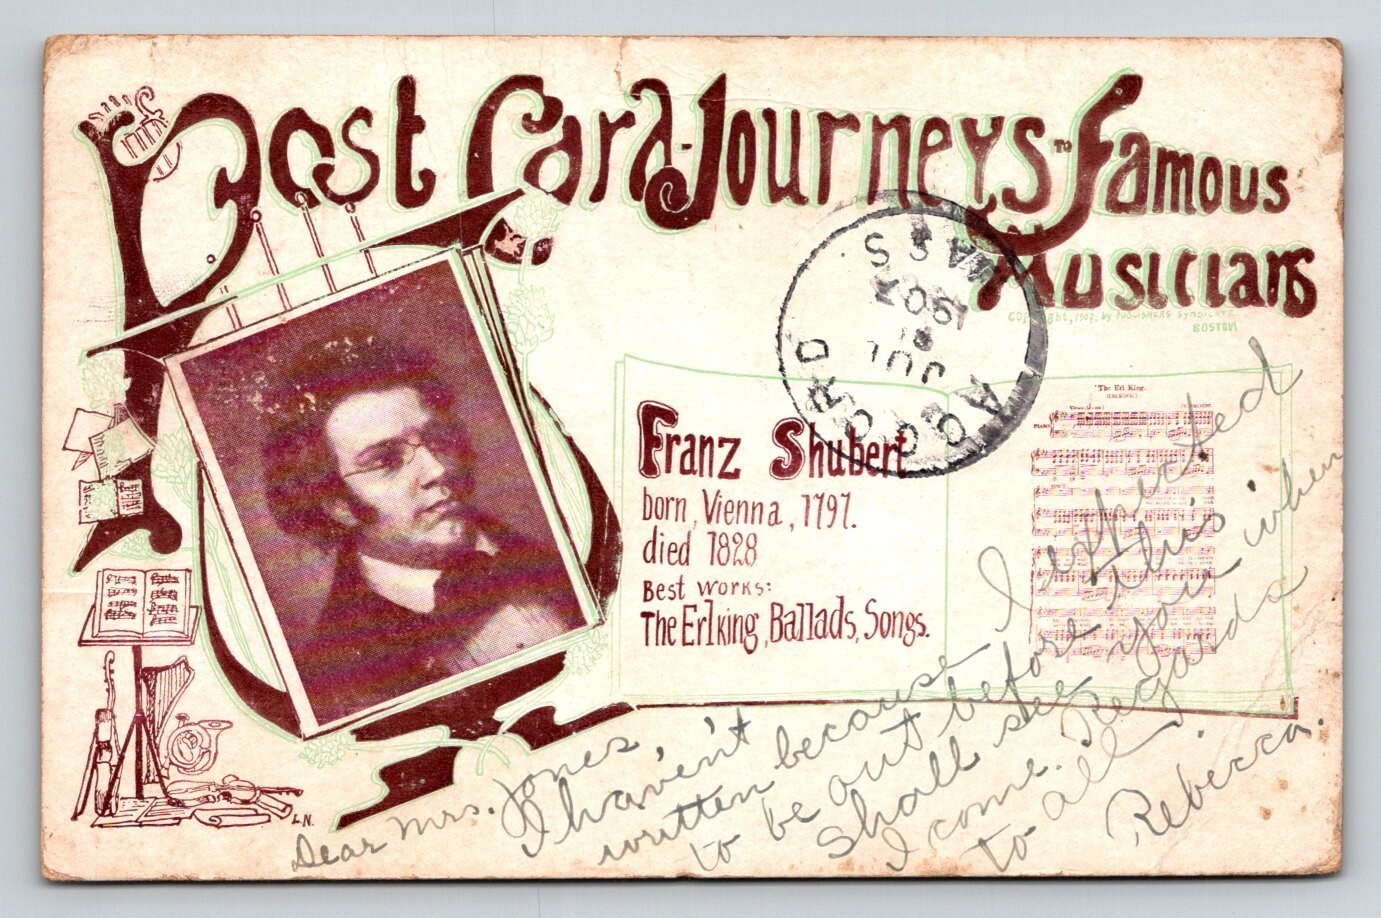 Post Card-Journeys to Famous
Musicians
Copyright, 1907, by Publishers Syndicate
Boston
CONCORD
JUL
1907
MASS
Franz Shubert
born, Vienna, 1797.
died 1828
Best Works:
The Erlking, Ballads, Songs.
"The Erl King.
PIANO
L.N.
Dear Mrs. Jones,
I haven't
written because I expected
to be out before this
shall see you when
I come. Regards
to all
Rebecca.